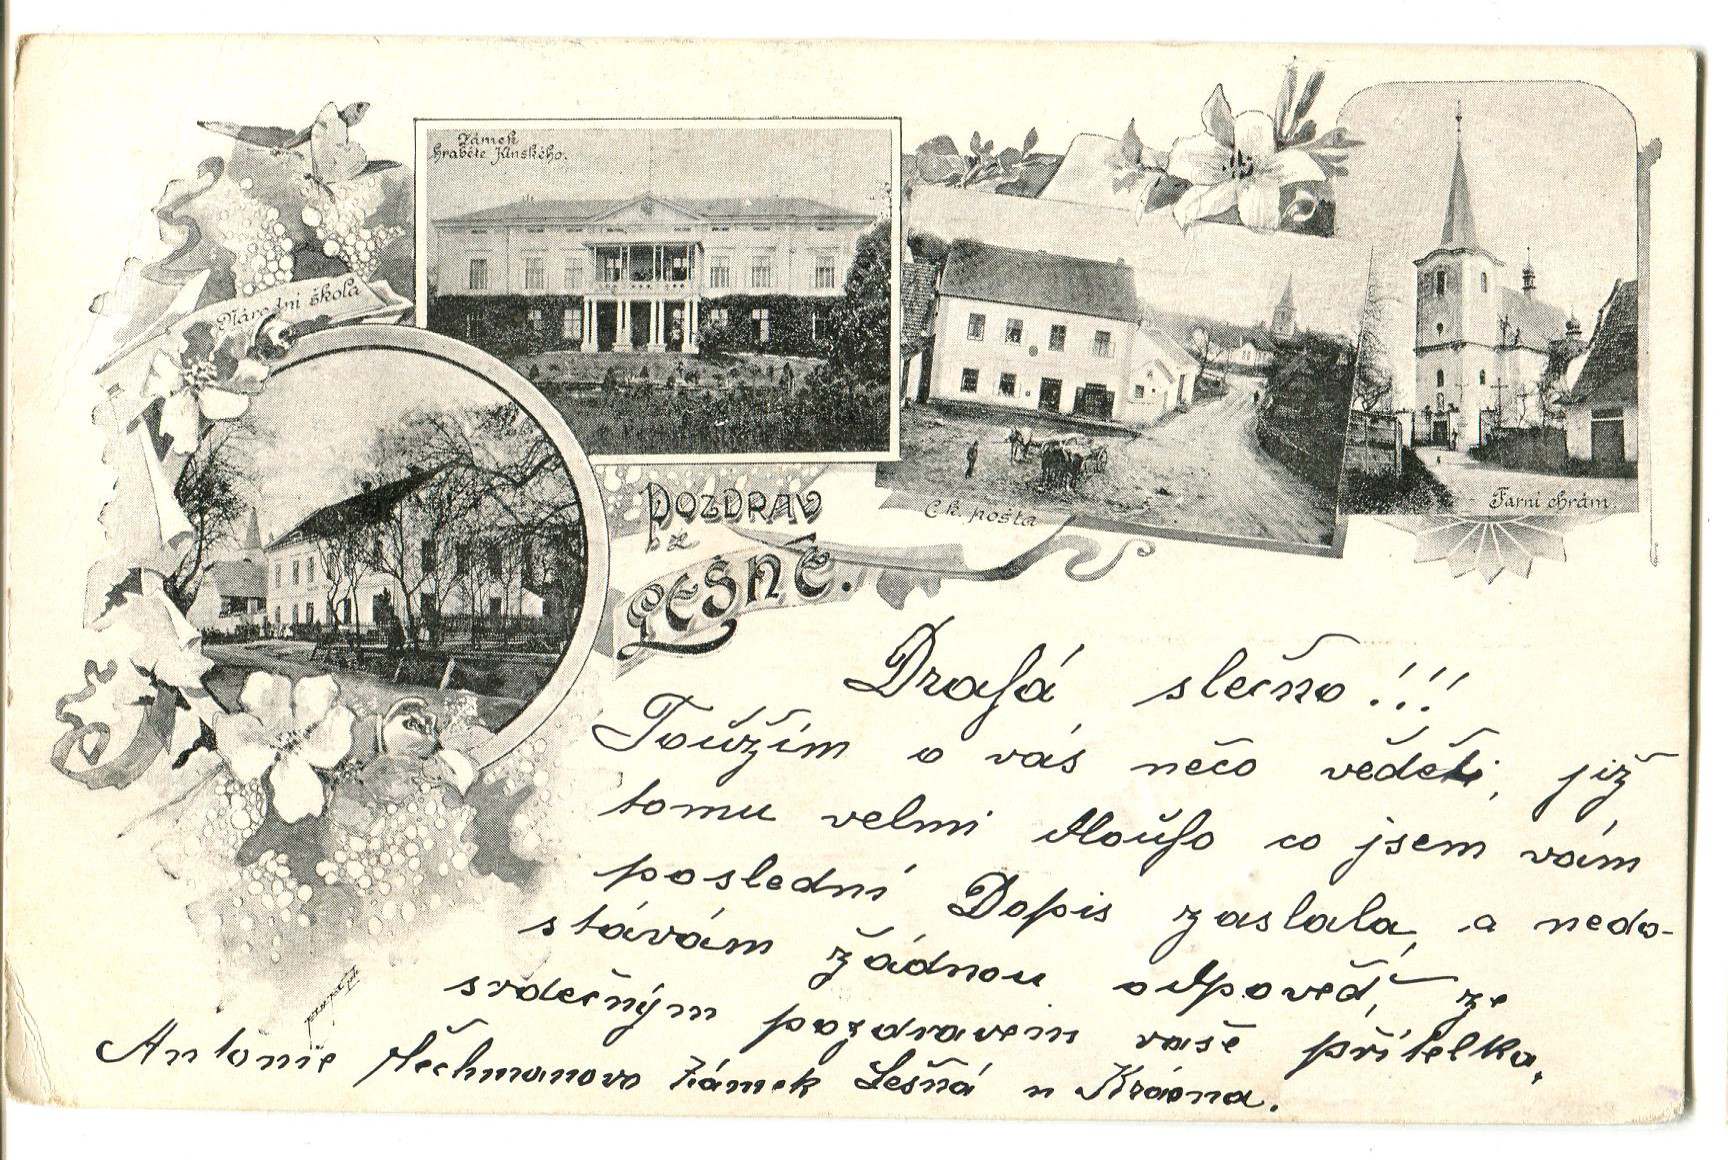 Zámek
hraběte Kinského.
Národní škola
C. k. pošta
Farní chrám.
POZDRAV
z
LEŠNÉ.
Drahá slečno!!!
Toužím o vás něco věděti, již
tomu velmi dlouho co jsem vám
poslední Dopis zaslala, a nedo-
stávám žádnou odpověď, ze
srdečným pozdravem vaše přítelka,
Antonie Zámek Lešná u Krásna.